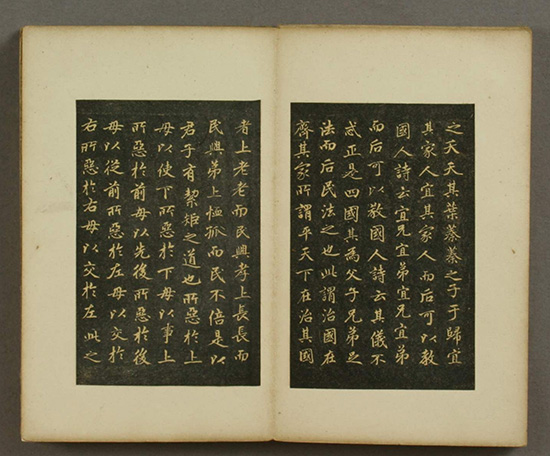 之夭夭其葉蓁蓁之子于歸宜
其家人宜其家人而后可以教
國人詩云宜兄宜弟宜兄宜弟
而后可以教國人詩云其儀不
忒正是四國其為父子兄弟足
法而后民法之也此謂治國在
齊其家所謂平天下在治其國
者上老老而民興孝上長長而
民興弟上恤孤而民不倍是以
君子有絜矩之道也所惡於上
毋以使下所惡於下毋以事上
所惡於前毋以先後所惡於後
毋以從前所惡於左毋以交於
右所惡於右毋以交於左此之